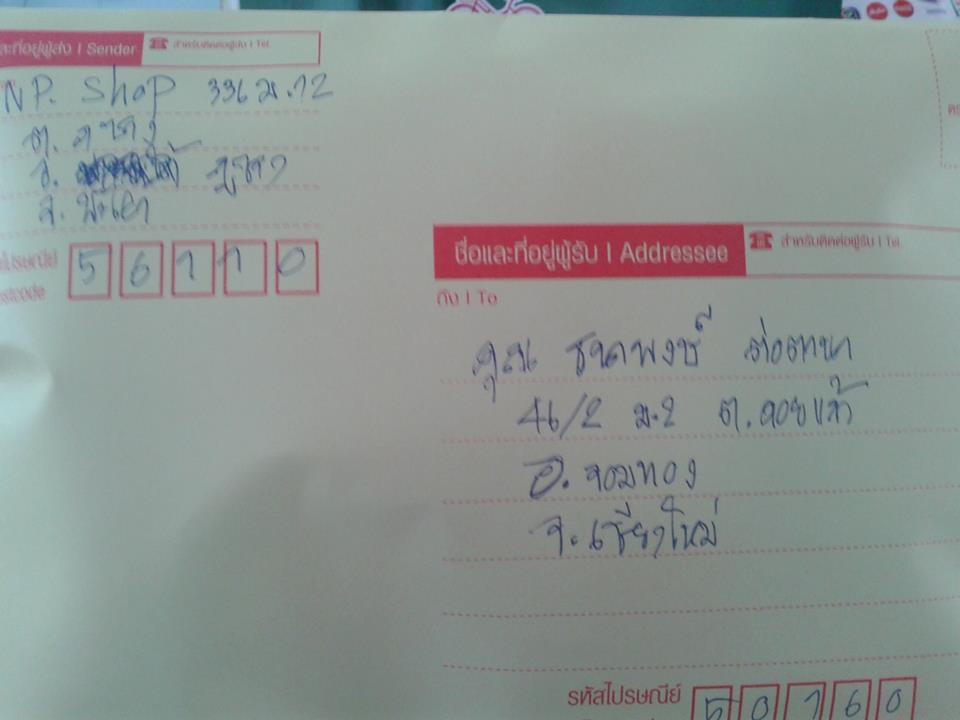 ละที่อยู่ผู้ส่ง | Sender
สำหรับติดต่อผู้ส่ง | Tel.
NP. Shop 336 ม.12
ต.
อ. ภูซาง
จ. พะเยา
ไปรษณีย์
stcode
56110
ชื่อและที่อยู่ผู้รับ | Addressee
สำหรับติดต่อผู้รับ | Tel.
ถึง | To
คุณ ธนดพงษ์
46/2 ม.2 ต.ดอยแก้ว
อ.จอมทอง
จ.เชียงใหม่
รหัสไปรษณีย์
50160